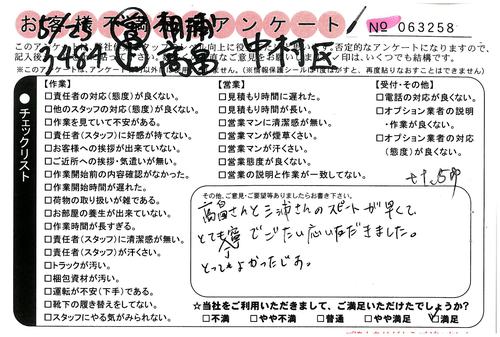 お客様不満アンケート
№ 063258
5/25
3484
高畠
中村氏
【作業】
□責任者の対応(態度)が良くない。
□他のスタッフの対応(態度)が良くない。
□作業を見ていて不安がある。
□責任者(スタッフ)に好感が持てない。
□お客様への挨拶が出来ていない。
□ご近所への挨拶・気遣いが無い。
□作業開始前の内容確認がなかった。
□作業開始時間が遅れた。
□荷物の取り扱いが雑である。
□お部屋の養生が出来ていない。
□作業時間が長すぎる。
□責任者(スタッフ)に清潔感が無い。
□責任者(スタッフ)が汗くさい。
□トラックが汚い。
□梱包資材が汚い。
□運転が不安(下手)である。
□靴下の履き替えをしてない。
□スタッフにやる気がみられない。
【営業】
□見積もり時間に遅れた。
□見積もり時間が長い。
□営業マンに清潔感が無い。
□営業マンが煙草くさい。
□営業マンが汗くさい。
□営業態度が良くない。
□営業の説明と作業が一致してない。
【受付・その他】
□電話の対応が良くない。
□オプション業者の説明
・作業が良くない。
□オプション業者の対応
(態度)が良くない。
●チェックリスト
その他、ご意見・ご要望等ありましたらお書き下さい。
高畠さんと三浦さんのスピードが早くて
とても寧でごたい応いただきました。
丁
とってもよかったじお。
☆当社をご利用いただきまして、ご満足いただけたでしょうか?
□不満 □やや不満 □普通 □やや満足 □満足